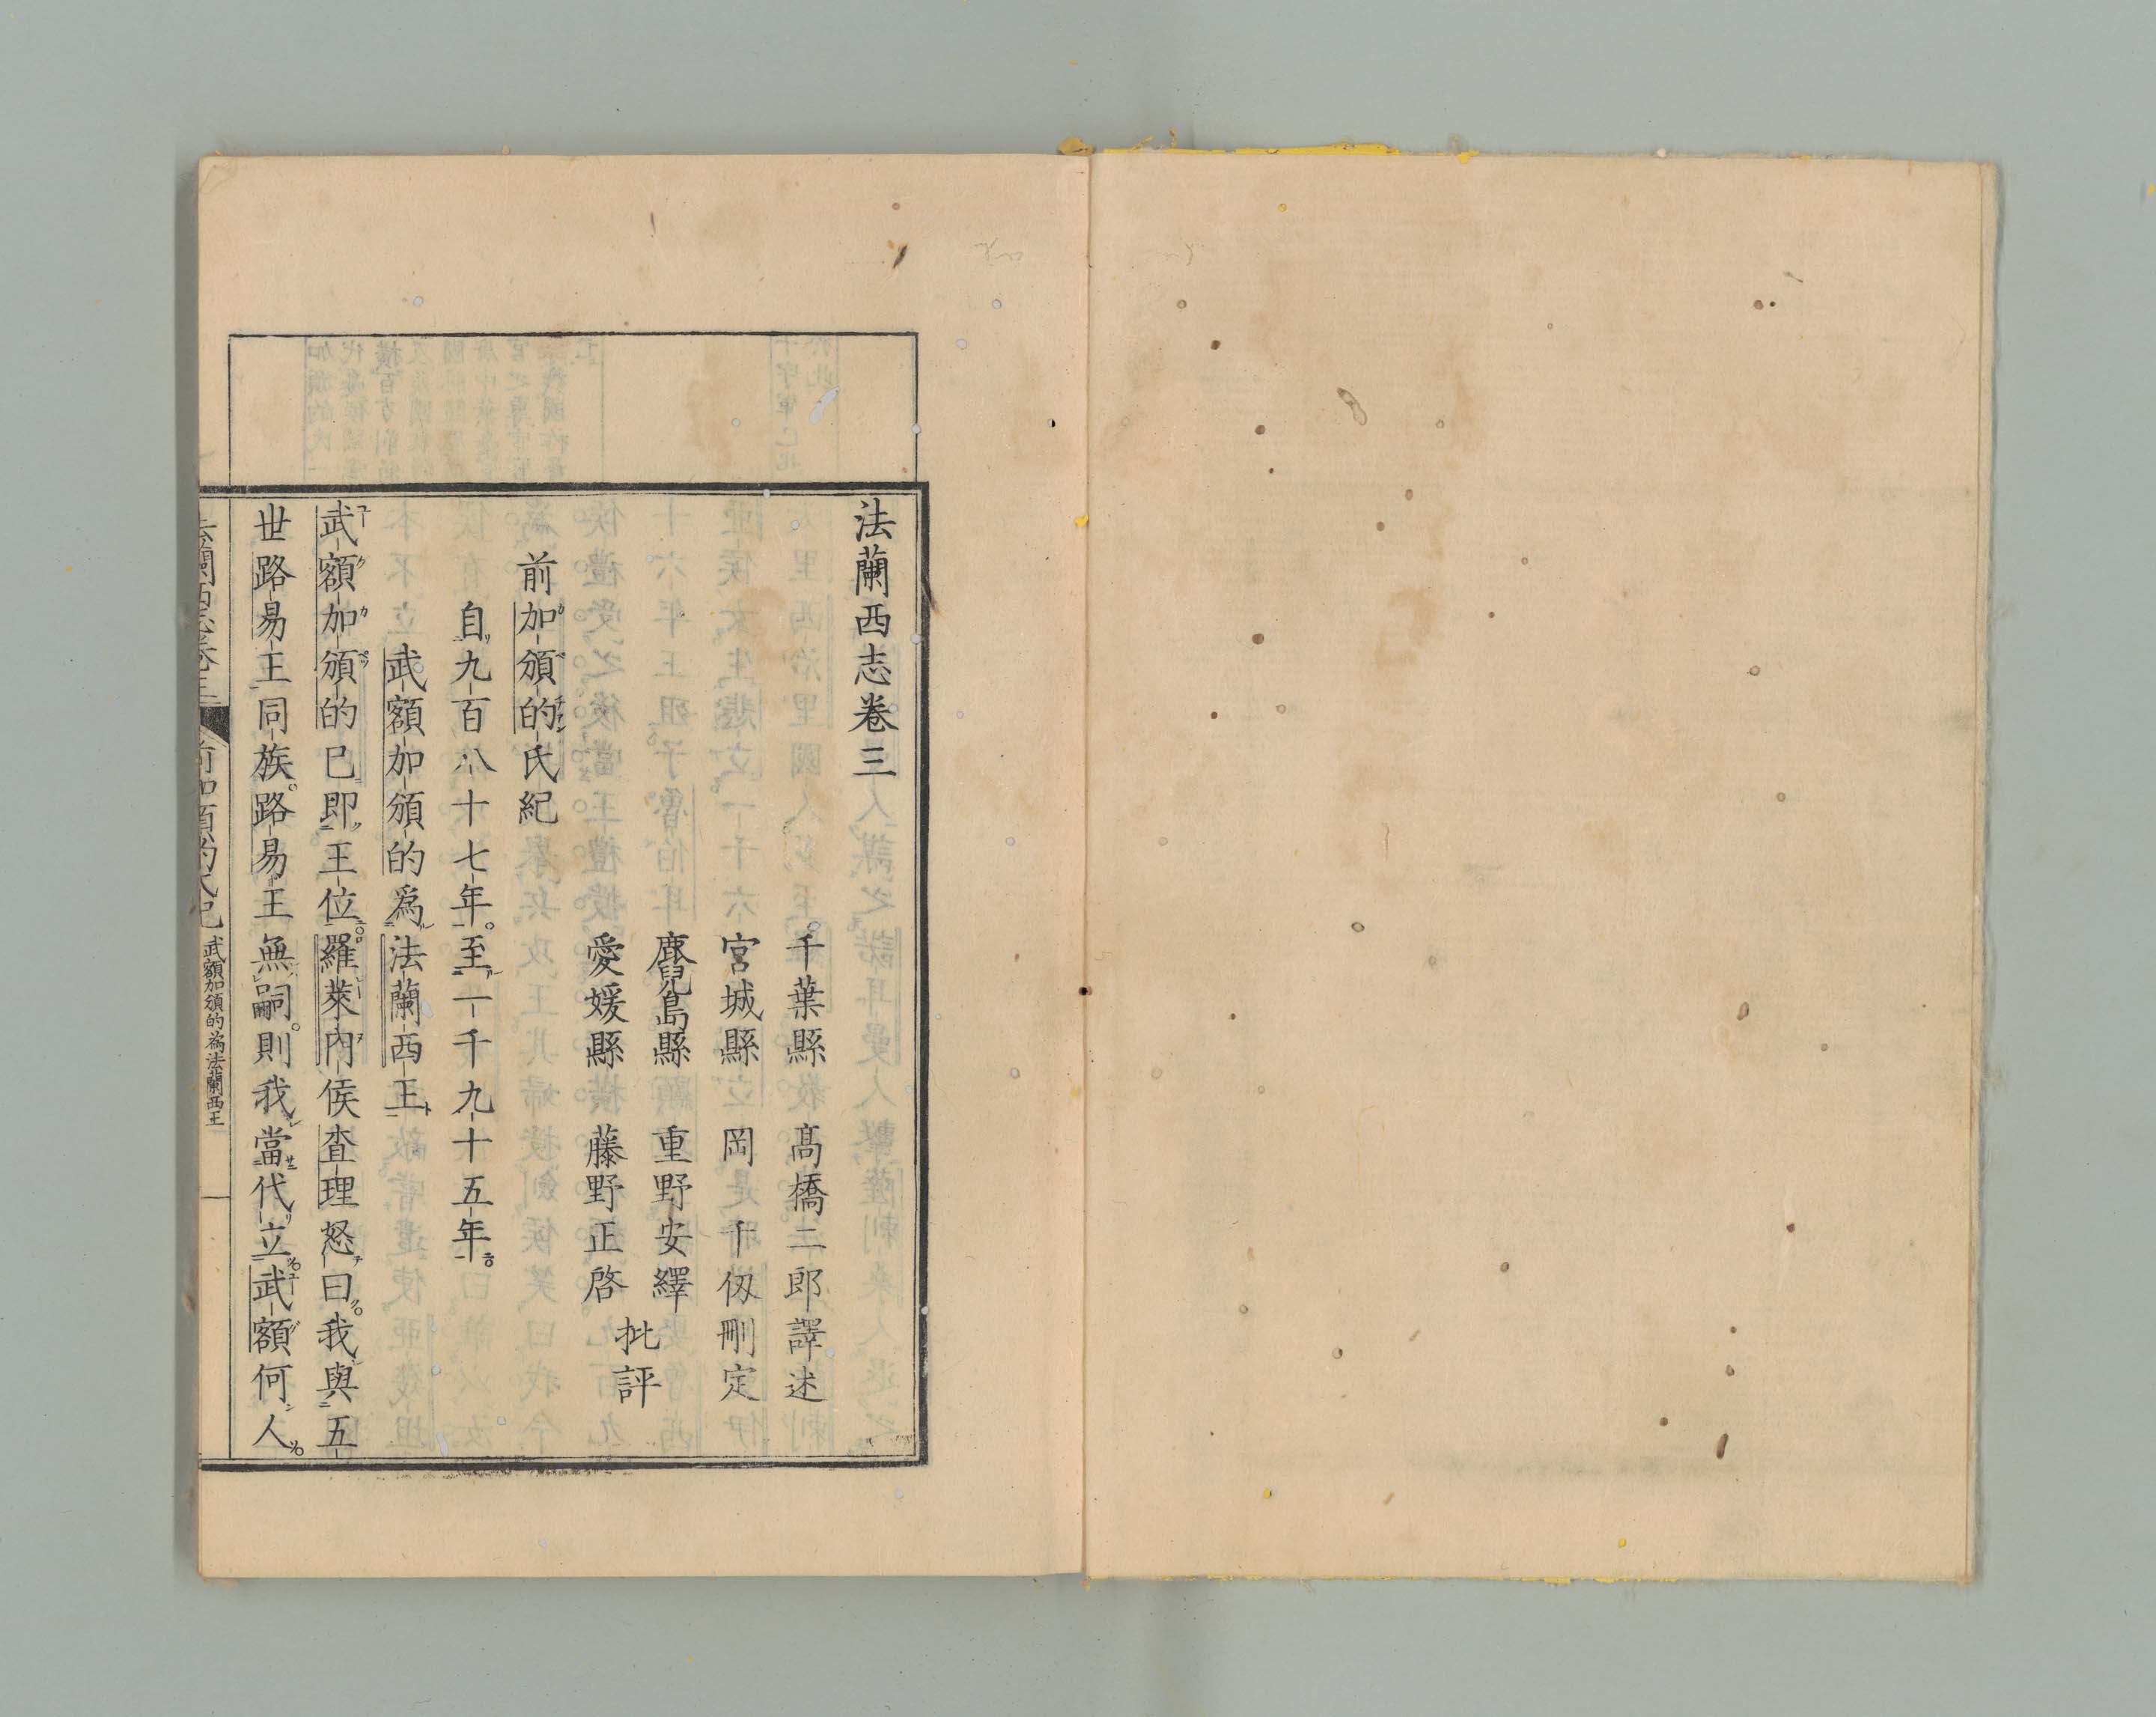 法蘭西志卷三
千葉縣 髙橋二郎譯述
宮城縣 岡千仭刪定
鹿兒島縣 重野安繹
愛媛縣 藤野正啓
批評
前加頒的氏紀
自九百八十七年。至一千九十五年。
武額加頒的爲法蘭西王
武額加頒的已即王位。羅萊内侯查理怒曰。我與五
世路易王同族。路易王無嗣。則我當代立。武額何人。
法蘭西志卷三 前加頒的氏紀 武額加頒的爲法蘭西王